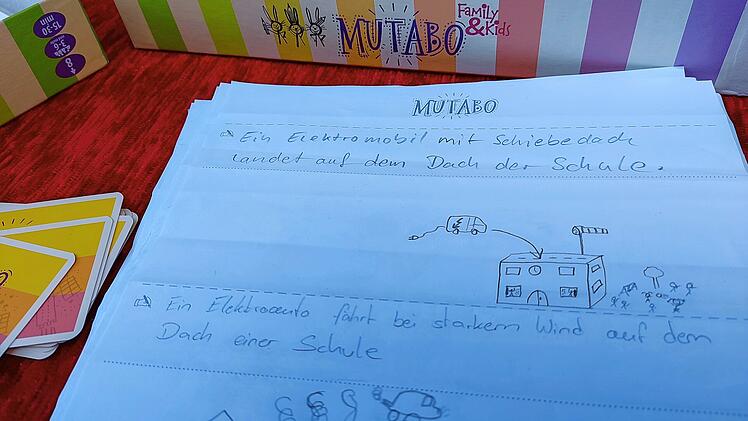 MUTABO
Family
& Kids
15-30
min
3-6
8+
MUTABO
Ein Elektromobil mit Schiebedach
landet auf dem Dach der Schule.
Ein Elektroauto fährt bei starkem Wind auf dem
Dach einer Schule